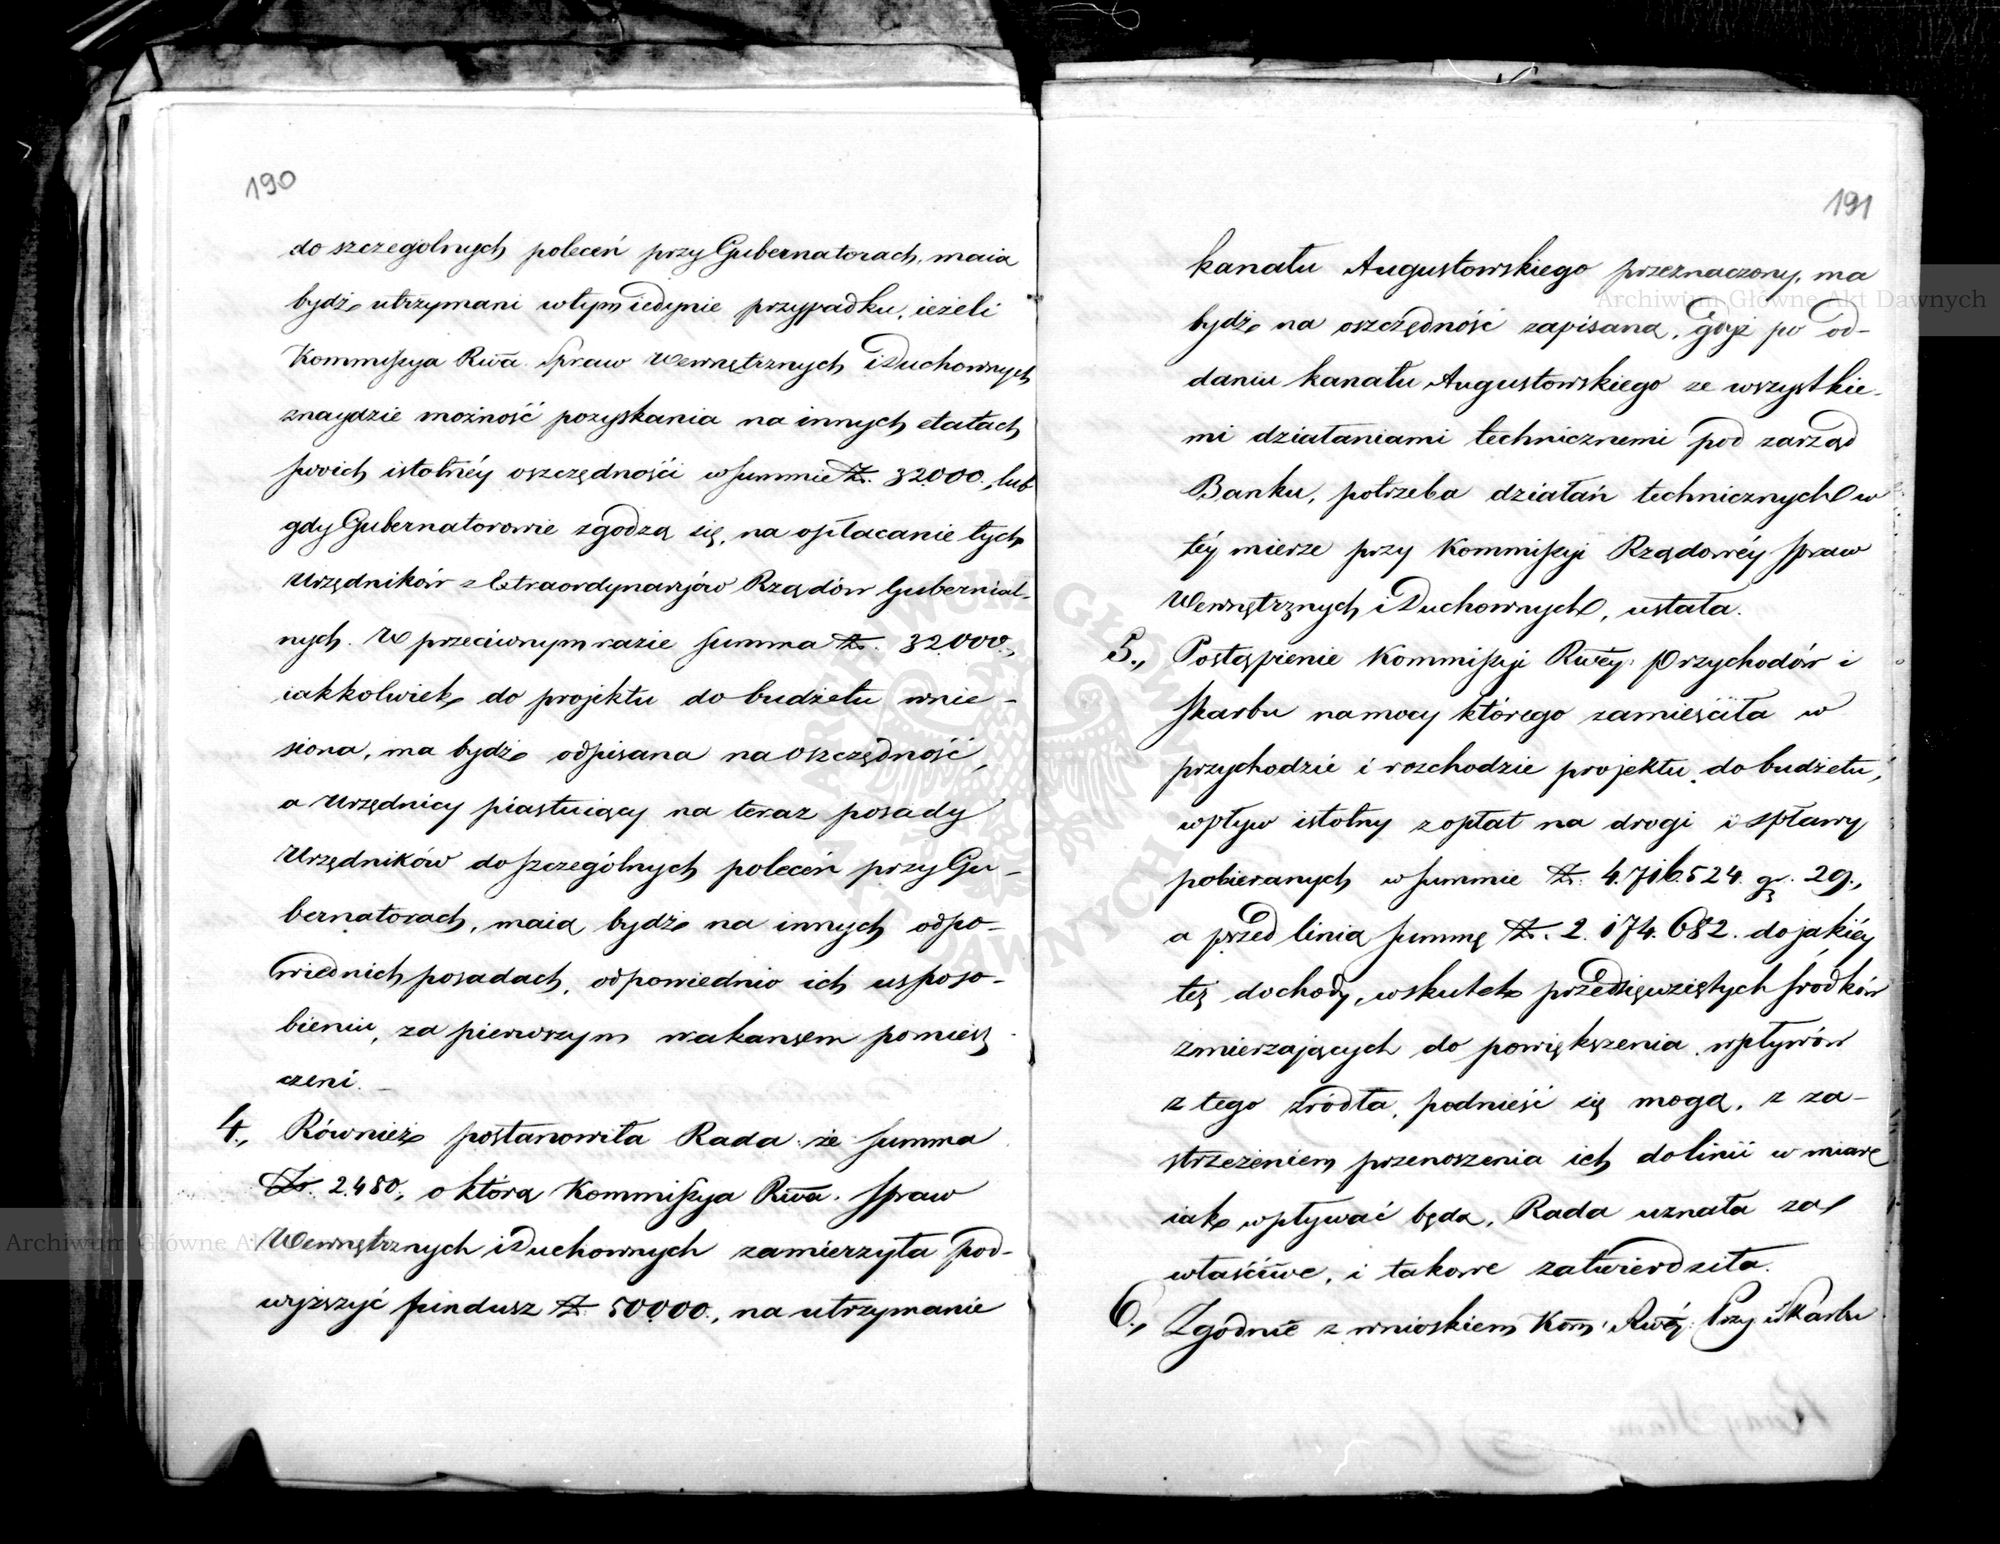 190
do szczegolnych poleceń przy Gubernatorach, maią
bydź utrzymani w tym iedynie przypadku, ieżeli
Kommissya Rwa. Spraw Wewnętrznych i Duchownych
znaydzie możność pozyskania na innych etatach
swoich istotnéy oszczędności w summie Zł. 32000., lub
gdy Gubernatorowie zgodzą się, na opłacanie tych
Urzędników z Extraordynaryów Rządów Gubernial-
nych. W przeciwnym razie summa Zł. 32000.,
iakkolwiek do projektu do budżetu wnie-
siona, ma bydź odpisana na oszczędność,
a Urzędnicy piastuiący na teraz posady
Urzędników do szczególnych poleceń przy Gu-
bernatorach, maią bydź na innych odpo-
wiednich posadach, odpowiednio ich usposo-
bieniu, za pierwszym wakansem pomiesz
czeni. —
4., Również postanowiła Rada że summa
Zł. 2.480., o którą Kommissya Rwa. Spraw
Wewnętrznych i Duchownych zamierzyła pod-
wyższyć fundusz Zł. 50000., na utrzymanie
191
kanału Augustowskiego przeznaczony, ma
bydź na oszczędność zapisaną, gdyż po od-
daniu kanału Augustowskiego ze wszystkie-
mi działaniami technicznemi pod zarząd
Banku, potrzeba działań technicznych w
téy mierze przy Kommissyi Rządowéy Spraw
Wewnętrznych i Duchownych, ustała.
5., Postąpienie Kommissyi Rwéy: Przychodów i
Skarbu na mocy którego zamieściła w
przychodzie i rozchodzie projektu do budżetu,
wpływ istotny z opłat na drogi i spławy
pobieranych w summie Zł. 4.716.524. gr. 29.,
a przed linią summę Zł. 2.174.682. do jakiéy
też dochody, wskutek przedsięwziętych środków
zmierzających do powiększenia wpływów
z tego źródła, podnieść się mogą, z za-
strzeżeniem przenoszenia ich do linii w miarę
iak wpływać będą, Rada uznała za
właściwe, i takowe zatwierdziła.
6., Zgodnie z wnioskiem Kom: Rwéy: Przy: i Skarbu
Archiwum Główne Akt Dawnych